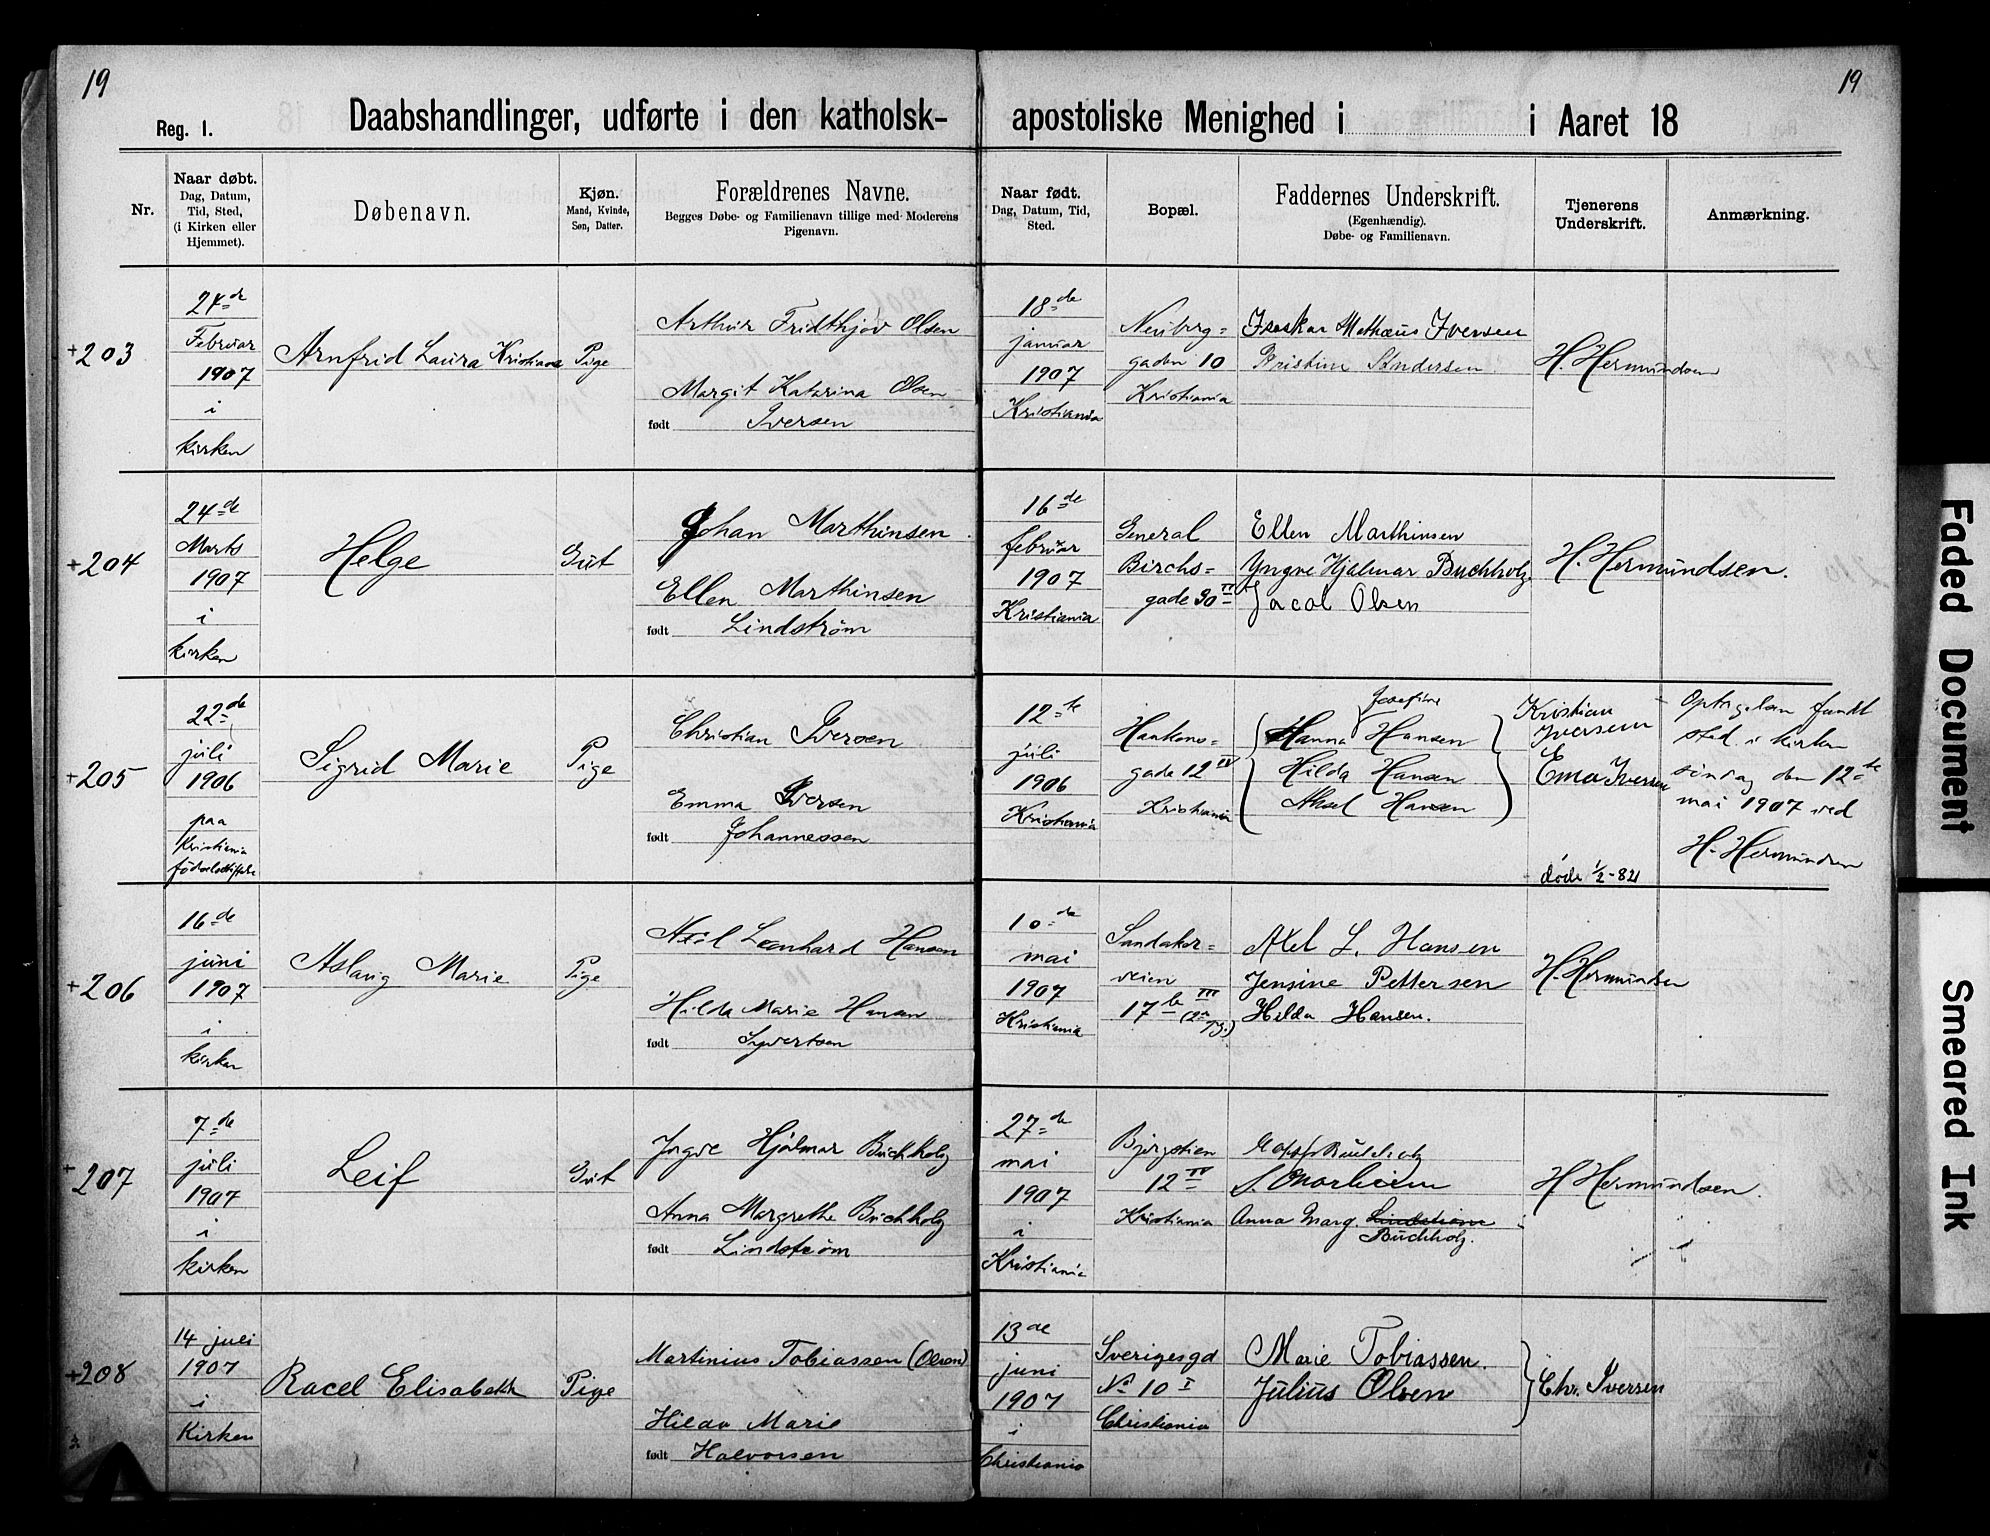 19
19
Reg. 1.
Daabshandlinger, udførte i den katholsk-
apostoliske Menighed i
i Aaret 18
Nr.
Naar døbt.
Dag, Datum,
Tid, Sted,
(i Kirken eller
Hjemmet).
Døbenavn.
Kjøn.
Mand, Kvinde,
Søn, Datter.
Forældrenes Navne.
Begges Døbe- og Familienavn tillige med Moderens
Pigenavn.
Naar født.
Dag, Datum, Tid,
Sted.
Bopæl.
Faddernes Underskrift.
(Egenhændig).
Døbe- og Familienavn.
Tjenerens
Underskrift.
Anmærkning.
+203
24de
Februar
1907
i
kirken
Arnfrid Laura Kristiane
Pige
Arthur Fridthjov Olsen
Margit Katarina Olsen
født Iversen
18de
januar
1907
Kristiania
Neuberg=
gaden 10
Kristiania
Isaskar Mathæus Iversen
Kristine Søndersen
H. Hermundsen
+204
24de
Marts
1907
i
kirken
Helge
Gut
Johan Marthinsen.
Ellen Marthinsen
født Lindstrøm
16de
februar
1907
Kristiania
General
Birchs=
gade 30 IV
Ellen Marthinsen
Yngve Hjalmar Buchholz
Jacob Olsen
H. Hermundsen.
+205
22de
juli
1906
paa
Kristiania
fødselsstiftelse
Sigrid Marie
Pige
Christian Iversen
Emma Iversen
født Johannessen
12te
juli
1906
Kristiania
Haakons=
gade 12 IV
Kristiania
Josefine
Hanna Hansen
Hilda Hansen
Aksel Hansen
Kristian
Iversen
Ema Iversen
døde 1/2-82
Optagelsen fandt
sted i kirken
søndag den 12te
mai 1907 ved
H. Hermundsen
+206
16de
juni
1907
i
kirken
Aslaug Marie
Pige
Axel Leonhard Hansen
Hilda Marie Hansen
født Syvertsen
10de
mai
1907
Kristiania
Sandaker=
veien
17b III
Axel L. Hansen
Jensine Pettersen
Hilda Hansen.
H. Hermundsen
+207
7de
juli
1907
i
kirken
Leif
Gut
Yngve Hjalmar Buchholz
Anna Margrethe Buchholz
født Lindstrøm
27de
mai
1907
i
Kristiania
12 IV
Kristiania
Anna Marg. Lindstrøm
Buchholz.
H Hermundsen.
+208
14 juli
1907
i
Kirken
Racel Elisabeth
Pige
Martinius Tobiassen (Olsen)
Hilda Marie
født Halvorsen
13de
juni
1907
i
Christiania
Sverigesgd
No 10 I
Christiania
Marie Tobiassen.
Julius Olsen
Chr. Iversen
Faded Document
Smeared Ink